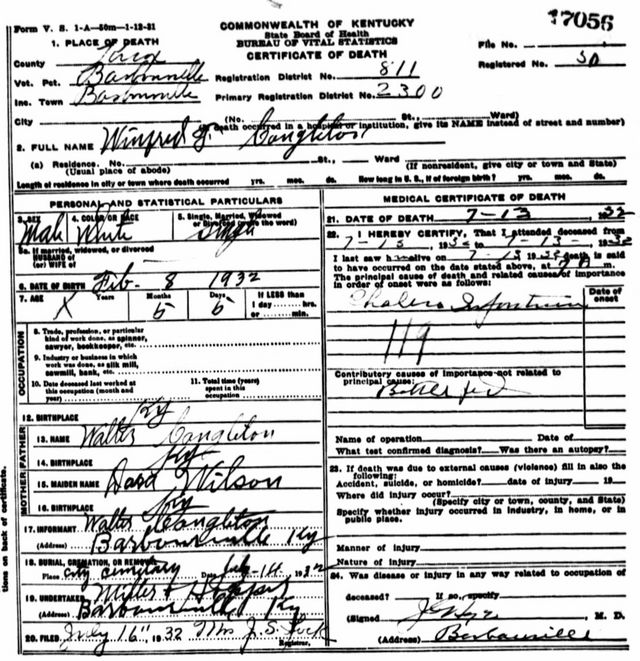 Form V. S. 1-A—50m—1-12-31
COMMONWEALTH OF KENTUCKY
State Board of Health
BUREAU OF VITAL STATISTICS
CERTIFICATE OF DEATH
17056
File No.
Registered No. 50
1. PLACE OF DEATH
County Knox
Vot. Pct. Barbourville
Registration District No. 811
Inc. Town Barbourville
Primary Registration District No. 2300
City (No. St., Ward)
(If death occurred in a hospital or institution, give its NAME instead of street and number)
2. FULL NAME Winfred F. Congleton
(a) Residence. No. St., Ward
(Usual place of abode) (If nonresident, give city or town and State)
Length of residence in city or town where death occurred yrs. mos. ds. How long in U. S., if of foreign birth? yrs. mos. ds.
PERSONAL AND STATISTICAL PARTICULARS
3. SEX Male
4. COLOR OR RACE White
5. Single, Married, Widowed or Divorced (write the word) Single
5a. If married, widowed, or divorced
HUSBAND of
(or) WIFE of
6. DATE OF BIRTH Feb. 8 1932
7. AGE X Years Months 5 Days 5
If LESS than
1 day hrs.
or min.
OCCUPATION
8. Trade, profession, or particular
kind of work done, as spinner,
sawyer, bookkeeper, etc.
9. Industry or business in which
work was done, as silk mill,
sawmill, bank, etc.
10. Date deceased last worked at
this occupation (month and
year)
11. Total time (years)
spent in this
occupation
12. BIRTHPLACE Ky
MOTHER FATHER
13. NAME Walter Congleton
14. BIRTHPLACE Ky
15. MAIDEN NAME Wilson
16. BIRTHPLACE Ky
17. INFORMANT Walter Congleton
(Address) Barbourville Ky
18. BURIAL, CREMATION, OR REMOVAL
Place City Cemetary Date July 14 1932
19. UNDERTAKER Miller &
Barbourville, Ky
20. FILED July 16" 1932 Mrs J. S. Lock
Registrar.
MEDICAL CERTIFICATE OF DEATH
21. DATE OF DEATH 7-13 1932
22. I HEREBY CERTIFY, That I attended deceased from
7-13 1932 to 7-13- 1932
I last saw h alive on 7-13 1932 death is said
to have occurred on the date stated above, at m.
The principal cause of death and related causes of importance
in order of onset were as follows:
Date of
onset
Cholera Infantum
119
Contributory causes of importance not related to
principal cause:
Bottle fed
Name of operation Date of
What test confirmed diagnosis? Was there an autopsy?
23. If death was due to external causes (violence) fill in also the
following:
Accident, suicide, or homicide? date of injury 19
Where did injury occur?
(Specify city or town, county, and State)
Specify whether injury occurred in industry, in home, or in
public place.
Manner of injury
Nature of injury
24. Was disease or injury in any way related to occupation of
deceased? If so, specify
(Signed) M. D.
(Address) Barbourville
tions on back of certificate.